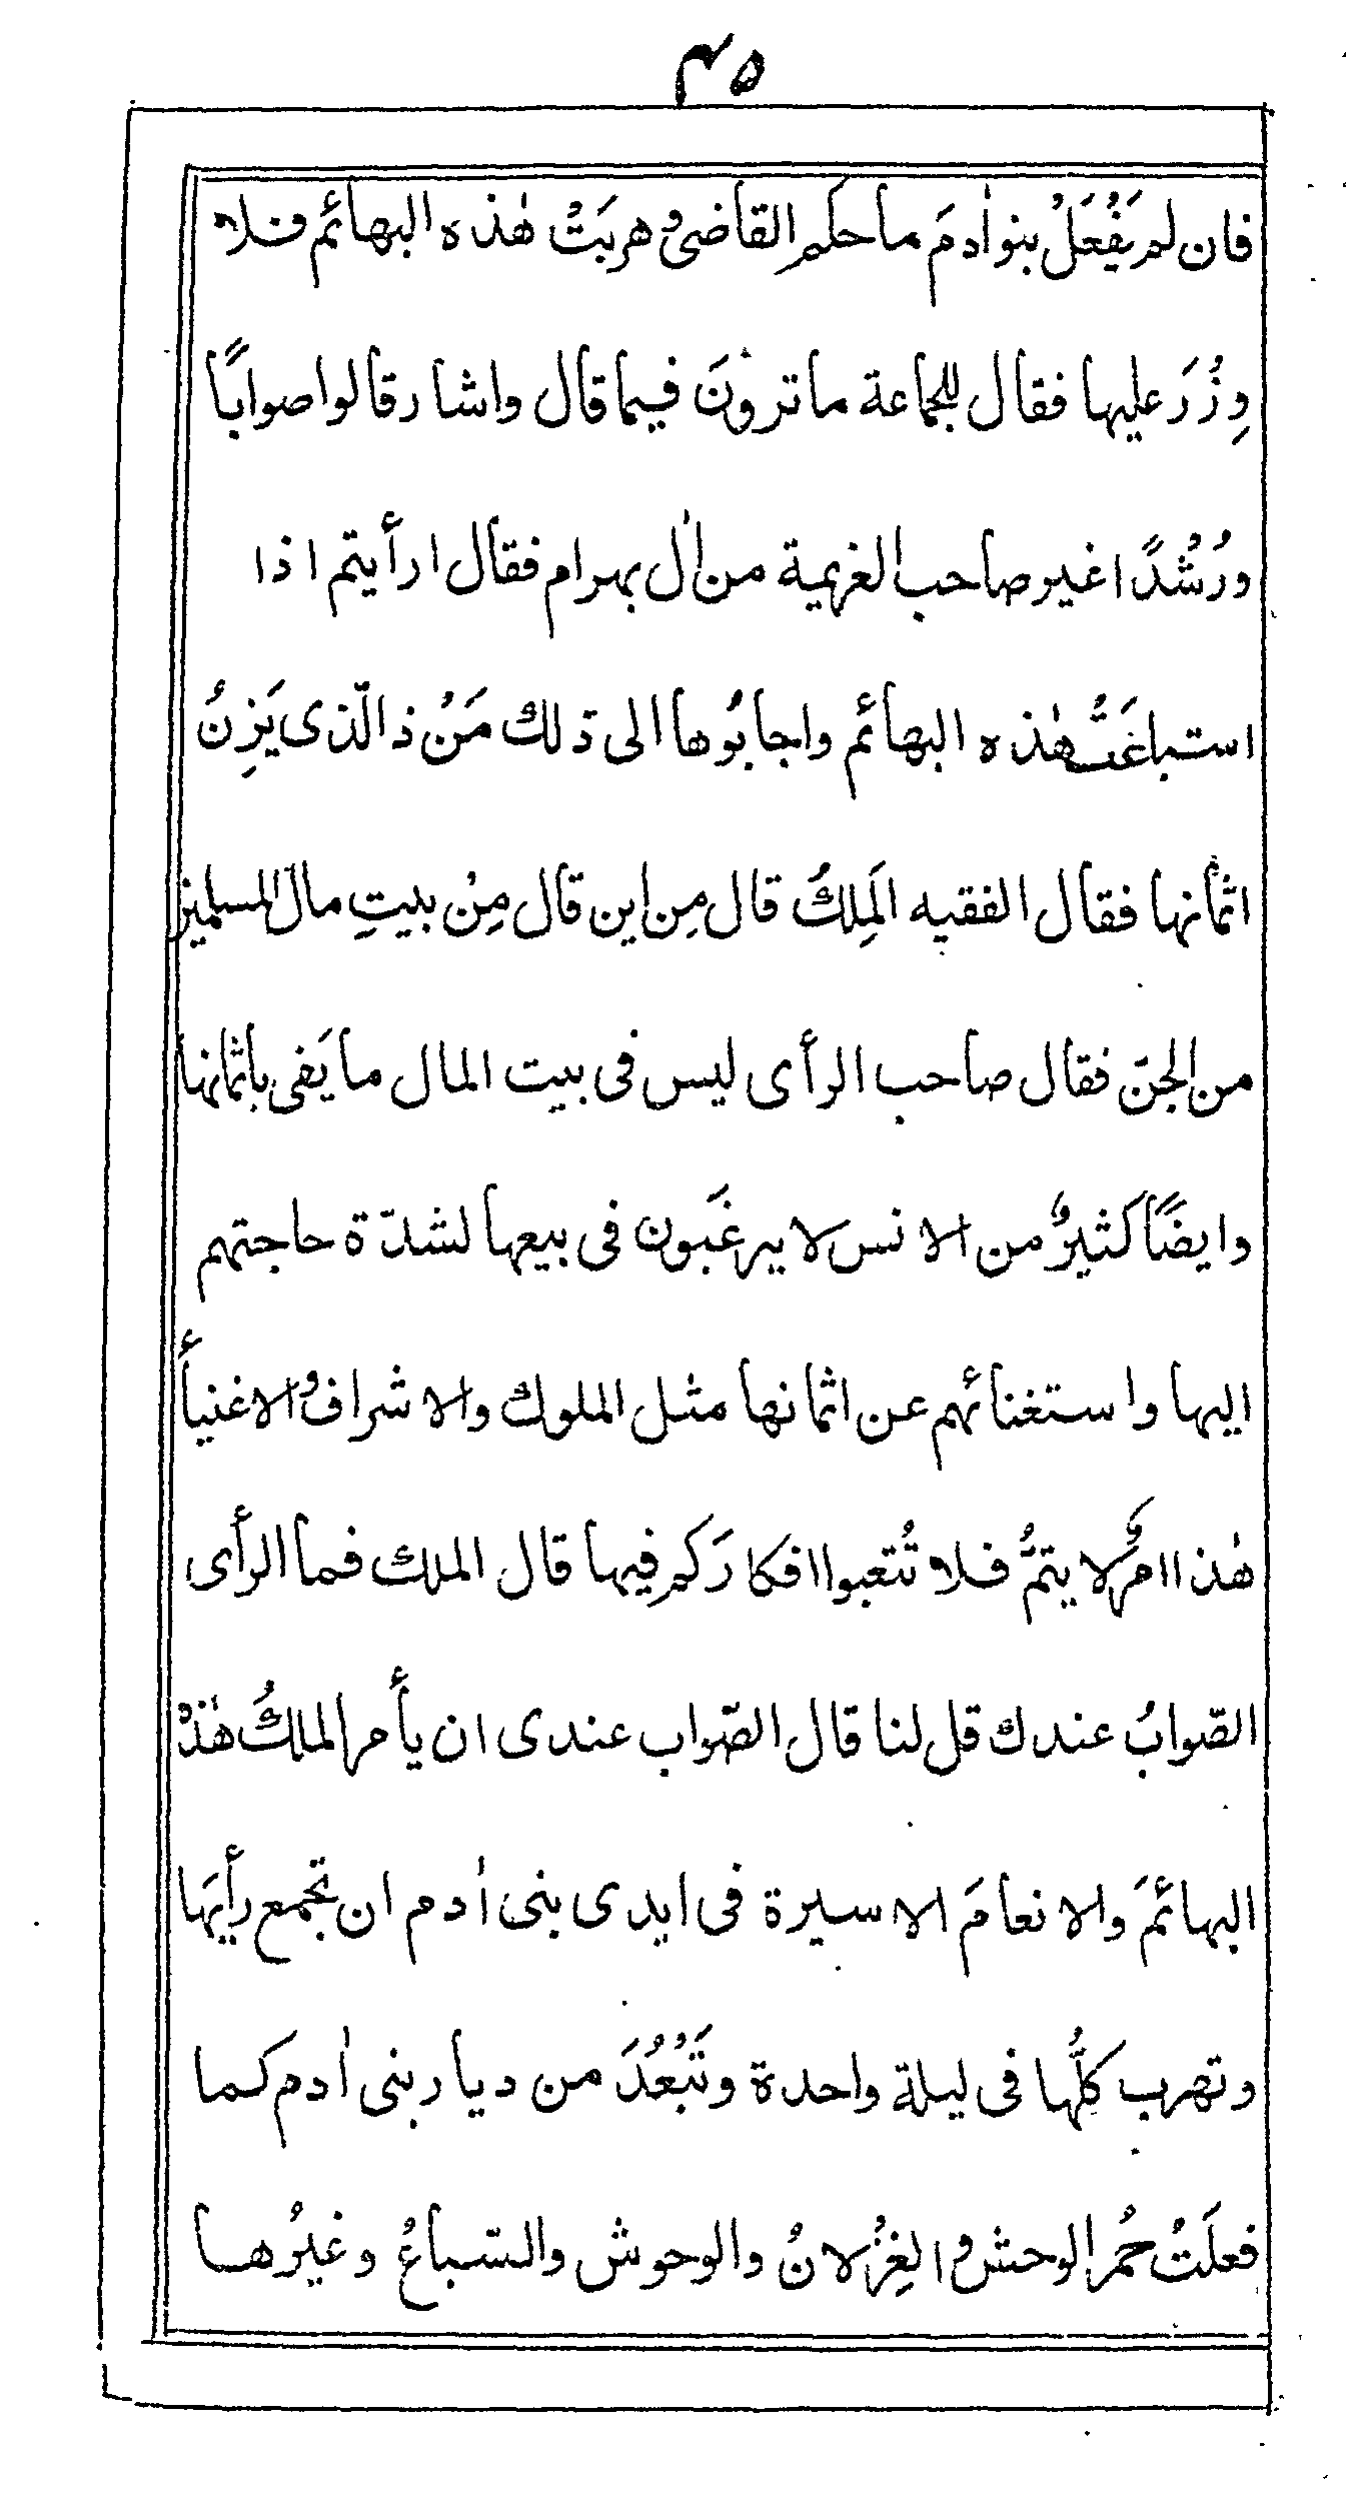 ٤٥
فان لم يَفْعَلْ بنو اٰدمَ ما حكم القاضى و هربَتْ هٰذه البهائم فلا
وِزْرَ عليها فقال للجماعة ما ترَوْنَ فيما قال واشار قالوا صوابًا
ورُشْدًا غير صاحب العزيمة من اٰل بهرام فقال ارأيتم اذا
استباعَتْ هٰذه البهائم واجابُوها الى ذلك مَنْ ذا الّذى يَزِنُ
اثمانها فقال الفقيه المَلِكُ قال مِن اين قال مِنْ بيتِ مال المسلمين
من الجنّ فقال صاحب الرأى ليس فى بيت المال ما يَفى باثمانها
وايضًا كثيرٌ من الانس لا يرغَبون فى بيعها لشدّة حاجتهم
اليها واستغنائهم عن اثمانها مثل الملوك والاشراف والاغنيأ
هٰذا امرٌ لا يتمُّ فلا تُتعبوا افكارَكم فيها قال الملك فما الرأى
الصّوابُ عندك قل لنا قال الصّواب عندى ان يأمر الملكُ هٰذه
البهائمَ والانعامَ الاسيرة فى ايدى بنى اٰدم ان تجمع رأيَها
وتهرب كلُّها فى ليلة واحدة وتَبْعُدَ من ديار بنى اٰدم كما
فعلَتْ حُمر الوحش و الغِزْلانُ والوحوش والسّباعُ وغيرُها